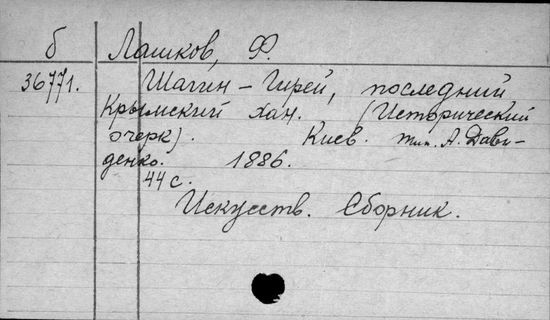 б Лашков, Ф.
36771. Шагин-Гирей, последний
Крымский хан. (Исторический
очерк). Киев. тип. А. Дави-
денко. 1886.
44 с.
Искусств. Сборник.